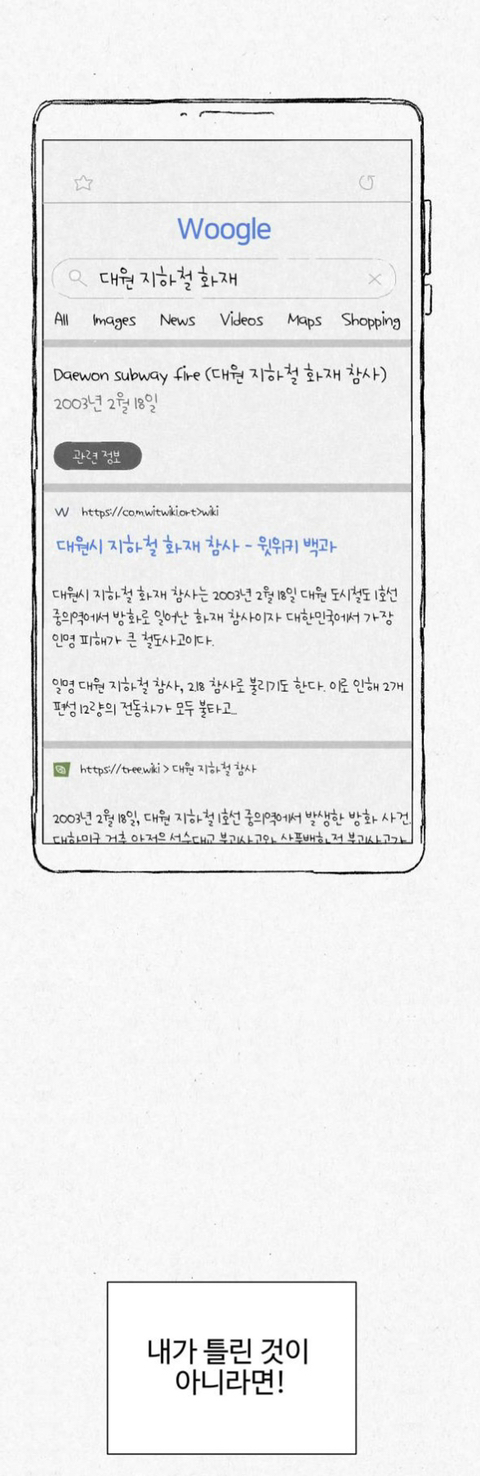 Woogle
대원 지하철 화재
All Images News Videos Maps Shopping
Daewon subway fire (대원 지하철 화재 참사)
2003년 2월 18일
관련 정보
W https://co.mwitwiki.ort>wiki
대원시 지하철 화재 참사 - 윗위키 백과
대원시 지하철 화재 참사는 2003년 2월 18일 대원 도시철도 1호선
중의역에서 방화로 일어난 화재 참사이자 대한민국에서 가장
인명 피해가 큰 철도사고이다.
일명 대원 지하철 참사, 218 참사로 불리기도 한다. 이로 인해 2개
편성 12량의 전동차가 모두 불타고..
https://tree.wiki > 대원 지하철 참사
2003년 2월 18일, 대원 지하철 1호선 중의역에서 발생한 방화 사건.
내가 틀린 것이
아니라면!